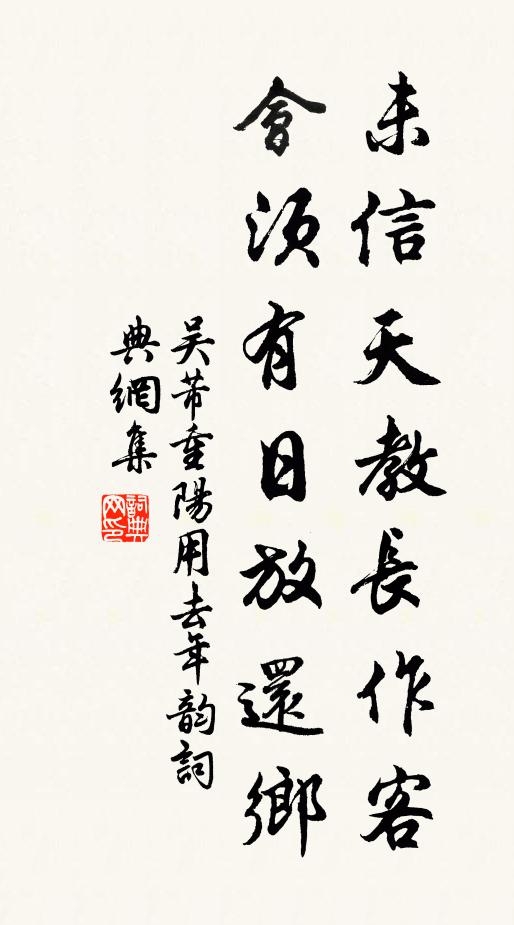 未信天教長作客
會須有日放還鄉
吴芾重陽用去年韵詞
典網集
詞典網印